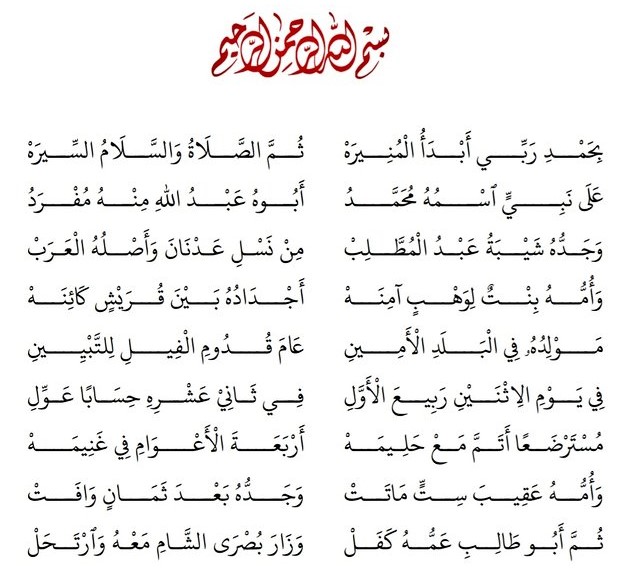 بسم الله الرحمن الرحيم
بِحَمْدِ رَبِّي أَبْدَأُ الْمُنِيرَهْ ثُمَّ الصَّلَاةُ وَالسَّلَامُ السِّيرَهْ
عَلَى نَبِيٍّ ٱسْمُهُ مُحَمَّدُ أَبُوهُ عَبْدُ اللهِ مِنْهُ مُفْرَدُ
وَجَدُّهُ شَيْبَةُ عَبْدُ الْمُطَّلِبْ مِنْ نَسْلِ عَدْنَانَ وَأَصْلُهُ الْعَرَبْ
وَأُمُّهُ بِنْتٌ لِوَهْبٍ آمِنَهْ أَجْدَادُهُ بَيْنَ قُرَيْشٍ كَائِنَهْ
مَوْلِدُهُ فِي الْبَلَدِ الْأَمِينِ عَامَ قُدُومِ الْفِيلِ لِلتَّبْيِينِ
فِي يَوْمِ الِاثْنَيْنِ رَبِيعَ الْأَوَّلِ فِي ثَانِيْ عَشْرِهِ حِسَابًا عَوِّلِ
مُسْتَرْضَعًا أَتَمَّ مَعْ حَلِيمَهْ أَرْبَعَةَ الْأَعْوَامِ فِي غَنِيمَهْ
وَأُمُّهُ عَقِيبَ سِتٍّ مَاتَتْ وَجَدُّهُ بَعْدَ ثَمَانٍ وَافَتْ
ثُمَّ أَبُو طَالِبِ عَمُّهُ كَفَلْ وَزَارَ بُصْرَى الشَّامِ مَعْهُ وَٱرْتَحَلْ